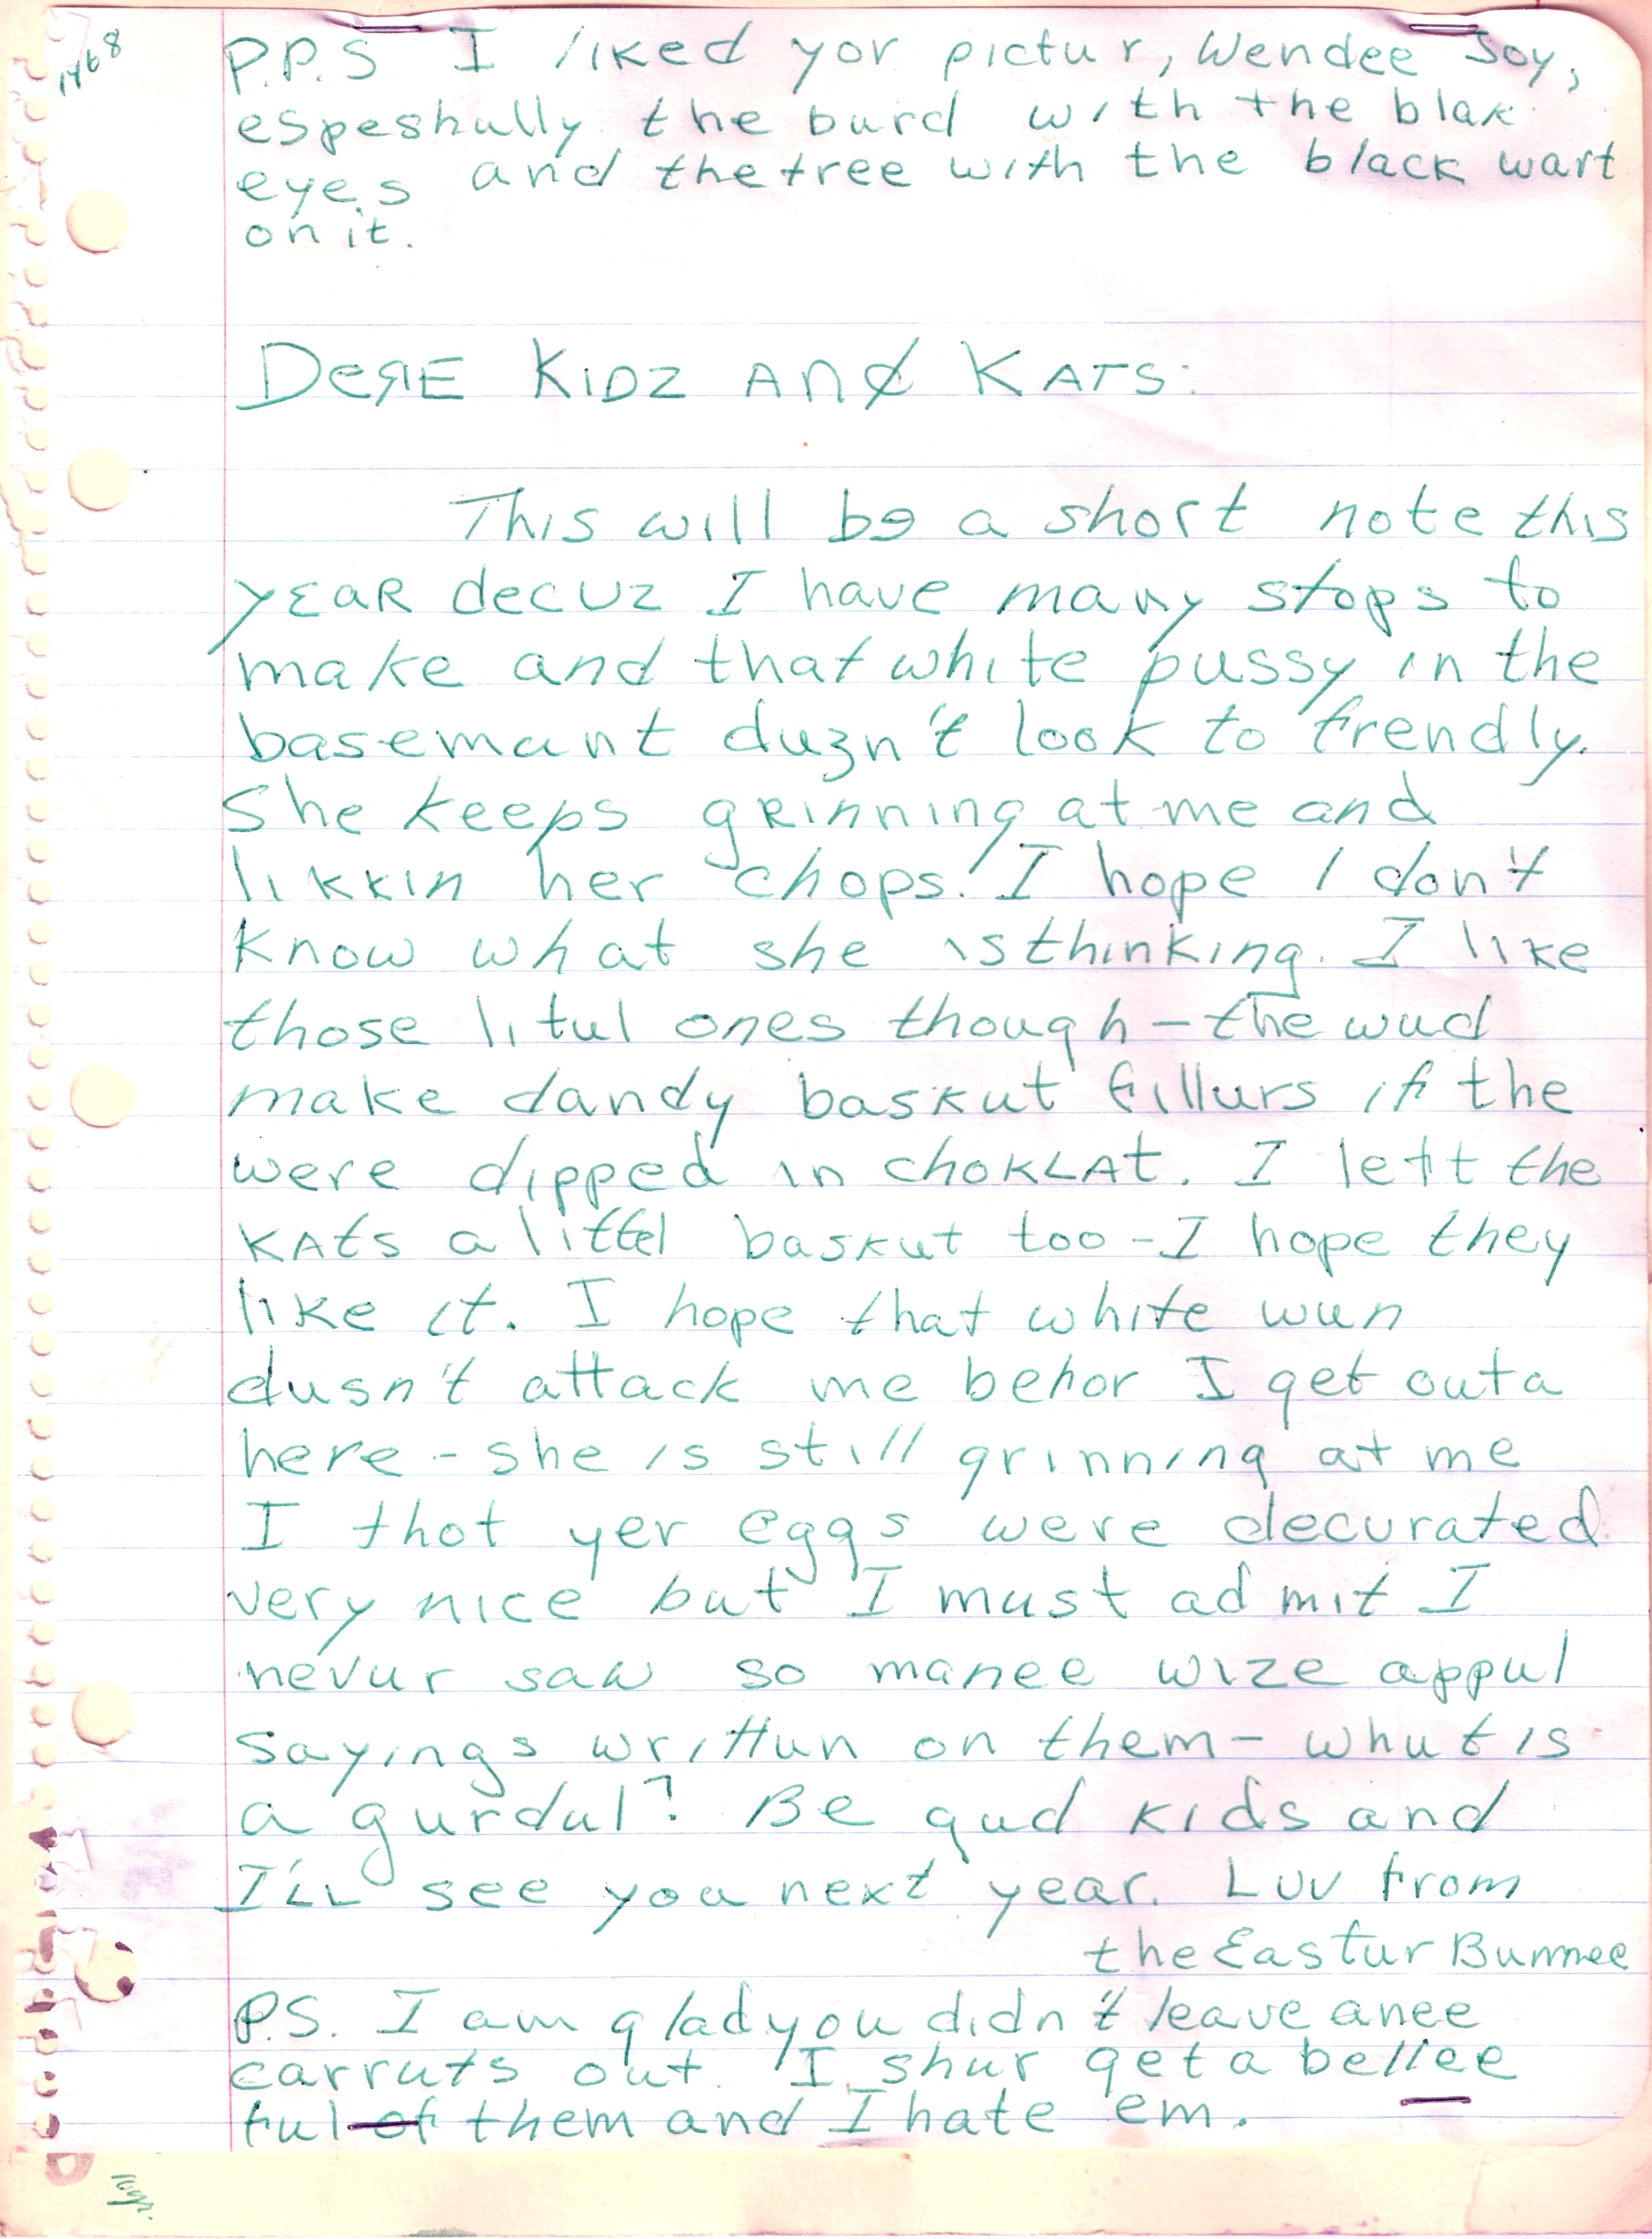 1968
P.P.S I liked yor pictur, Wendee Joy,
espeshully the burd with the blak
eyes and the tree with the black wart
on it.
DeRE KIDZ AND KATS:
This will be a short note this
yEaR decuz I have many stops to
make and that white pussy in the
basemant duzn't look to frendly.
She keeps gRinning at me and
likkin her chops! I hope I don't
know what she is thinking. I like
those litul ones though - the wud
make dandy baskut fillurs if the
were dipped in choKLAt. I left the
KAts a littel baskut too - I hope they
like it. I hope that white wun
dusn't attack me befor I get outa
here - she is still grinning at me
I thot yer eggs were decurated
very nice but I must admit I
nevur saw so manee wize appul
sayings writtun on them - whut is
a gurdul? Be gud kids and
I'LL see you next year. Luv from
the Eastur Bunnee
P.S. I am glad you didn't leave anee
carruts out. I shur get a bellee
ful of them and I hate em.